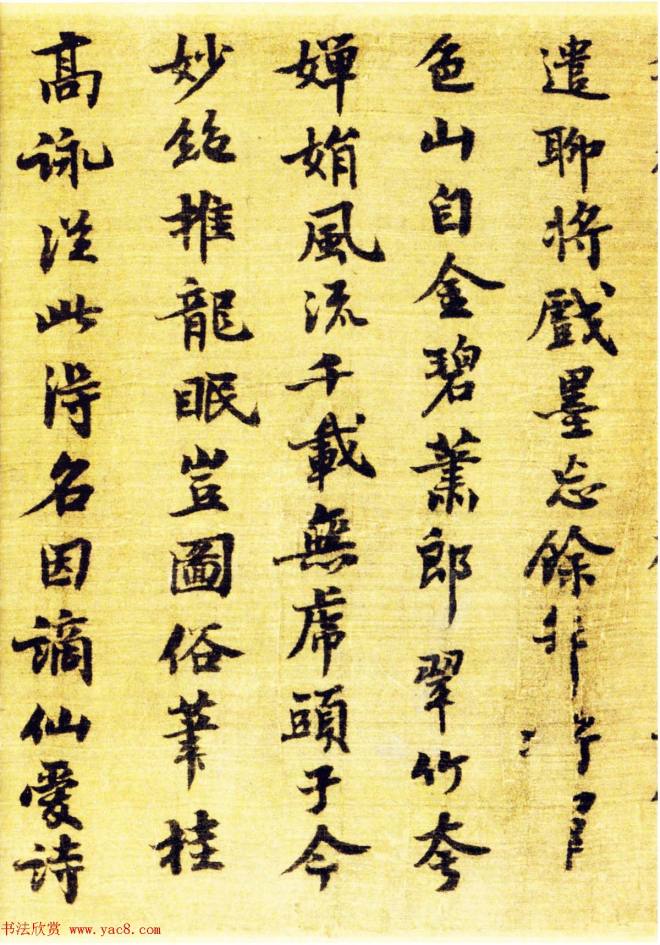 遣聊將戲墨忘餘
色山自金碧蕭郎翠竹夸
嬋娟風流千載無虎頭于今
妙絶推龍眠豈圖俗筆挂
髙詠從此得名因謫仙愛詩
书法欣赏 www.yac8.com